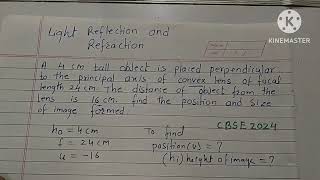 Light Reflection and
Refraction
KINEMASTER
A 4 cm tall object is placed perpendicular
to the principal axis of convex lens of focal
length 24 cm. The distance of object from the
lens is 16 cm. find the position and size
of image formed.
CBSE 2024
ho = 4 cm
f = 24 cm
u = -16
To find
position (v) = ?
(hi) height of image = ?